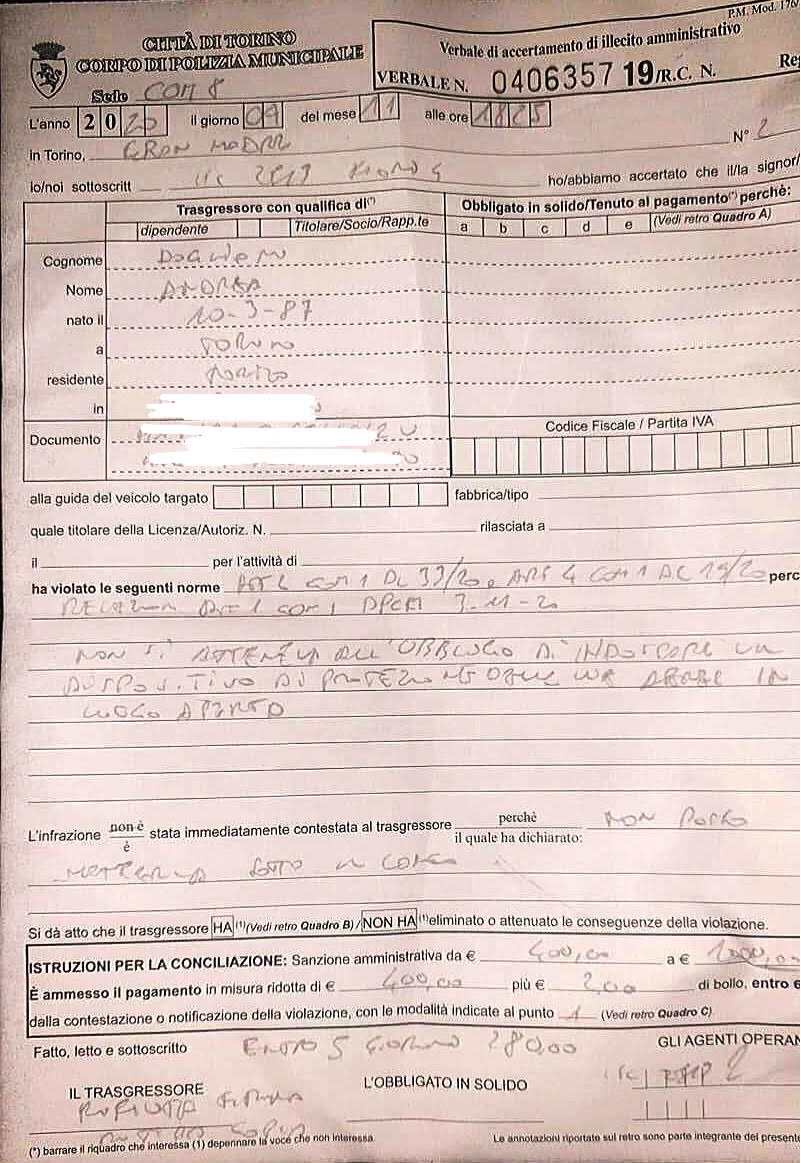 P.M. Mod. 176/
CITTÀ DI TORINO
CORPO DI POLIZIA MUNICIPALE
Verbale di accertamento di illecito amministrativo
VERBALE N. 0406357 19/R.C. N. Re
Sede COM 8
L'anno 2020 il giorno 09 del mese 11 alle ore 1825
in Torino, GRAN MADRE N° 2
io/noi sottoscritt ho/abbiamo accertato che il/la signor/
Trasgressore con qualifica di(*)
Obbligato in solido/Tenuto al pagamento(*) perchè:
dipendente Titolare/Socio/Rapp.te a b c d e (Vedi retro Quadro A)
Cognome
Nome ANDREA
nato il 10-3-87
a TORINO
residente
in
Documento
Codice Fiscale / Partita IVA
alla guida del veicolo targato fabbrica/tipo
quale titolare della Licenza/Autoriz. N. rilasciata a
il per l'attività di
ha violato le seguenti norme ART 2 COM 1 DL 33/20 e ART 4 COM 1 DL 19/20 perc
RELAZION ART 1 COM 1 DPCM 3-11-20
NON SI ATTENEVA ALL'OBBLIGO DI INDOSSARE UN
DISPOSITIVO DI PROTEZIONE DELLE VIE AEREE IN
LUOGO APERTO
L'infrazione non è / è stata immediatamente contestata al trasgressore perchè / il quale ha dichiarato: NON POSSO
METTERLA SOTTO
Si dà atto che il trasgressore HA (1)(Vedi retro Quadro B) / NON HA (1)eliminato o attenuato le conseguenze della violazione.
ISTRUZIONI PER LA CONCILIAZIONE: Sanzione amministrativa da € 400,00 a € 1000,00
È ammesso il pagamento in misura ridotta di € 400,00 più € 2,00 di bollo, entro €
dalla contestazione o notificazione della violazione, con le modalità indicate al punto 1 (Vedi retro Quadro C)
Fatto, letto e sottoscritto ENTRO 5 GIORNI 280,00 GLI AGENTI OPERAN
IL TRASGRESSORE L'OBBLIGATO IN SOLIDO
RIFIUTA FIRMA
(*) barrare il riquadro che interessa (1) depennare la voce che non interessa.
Le annotazioni riportate sul retro sono parte integrante del presente